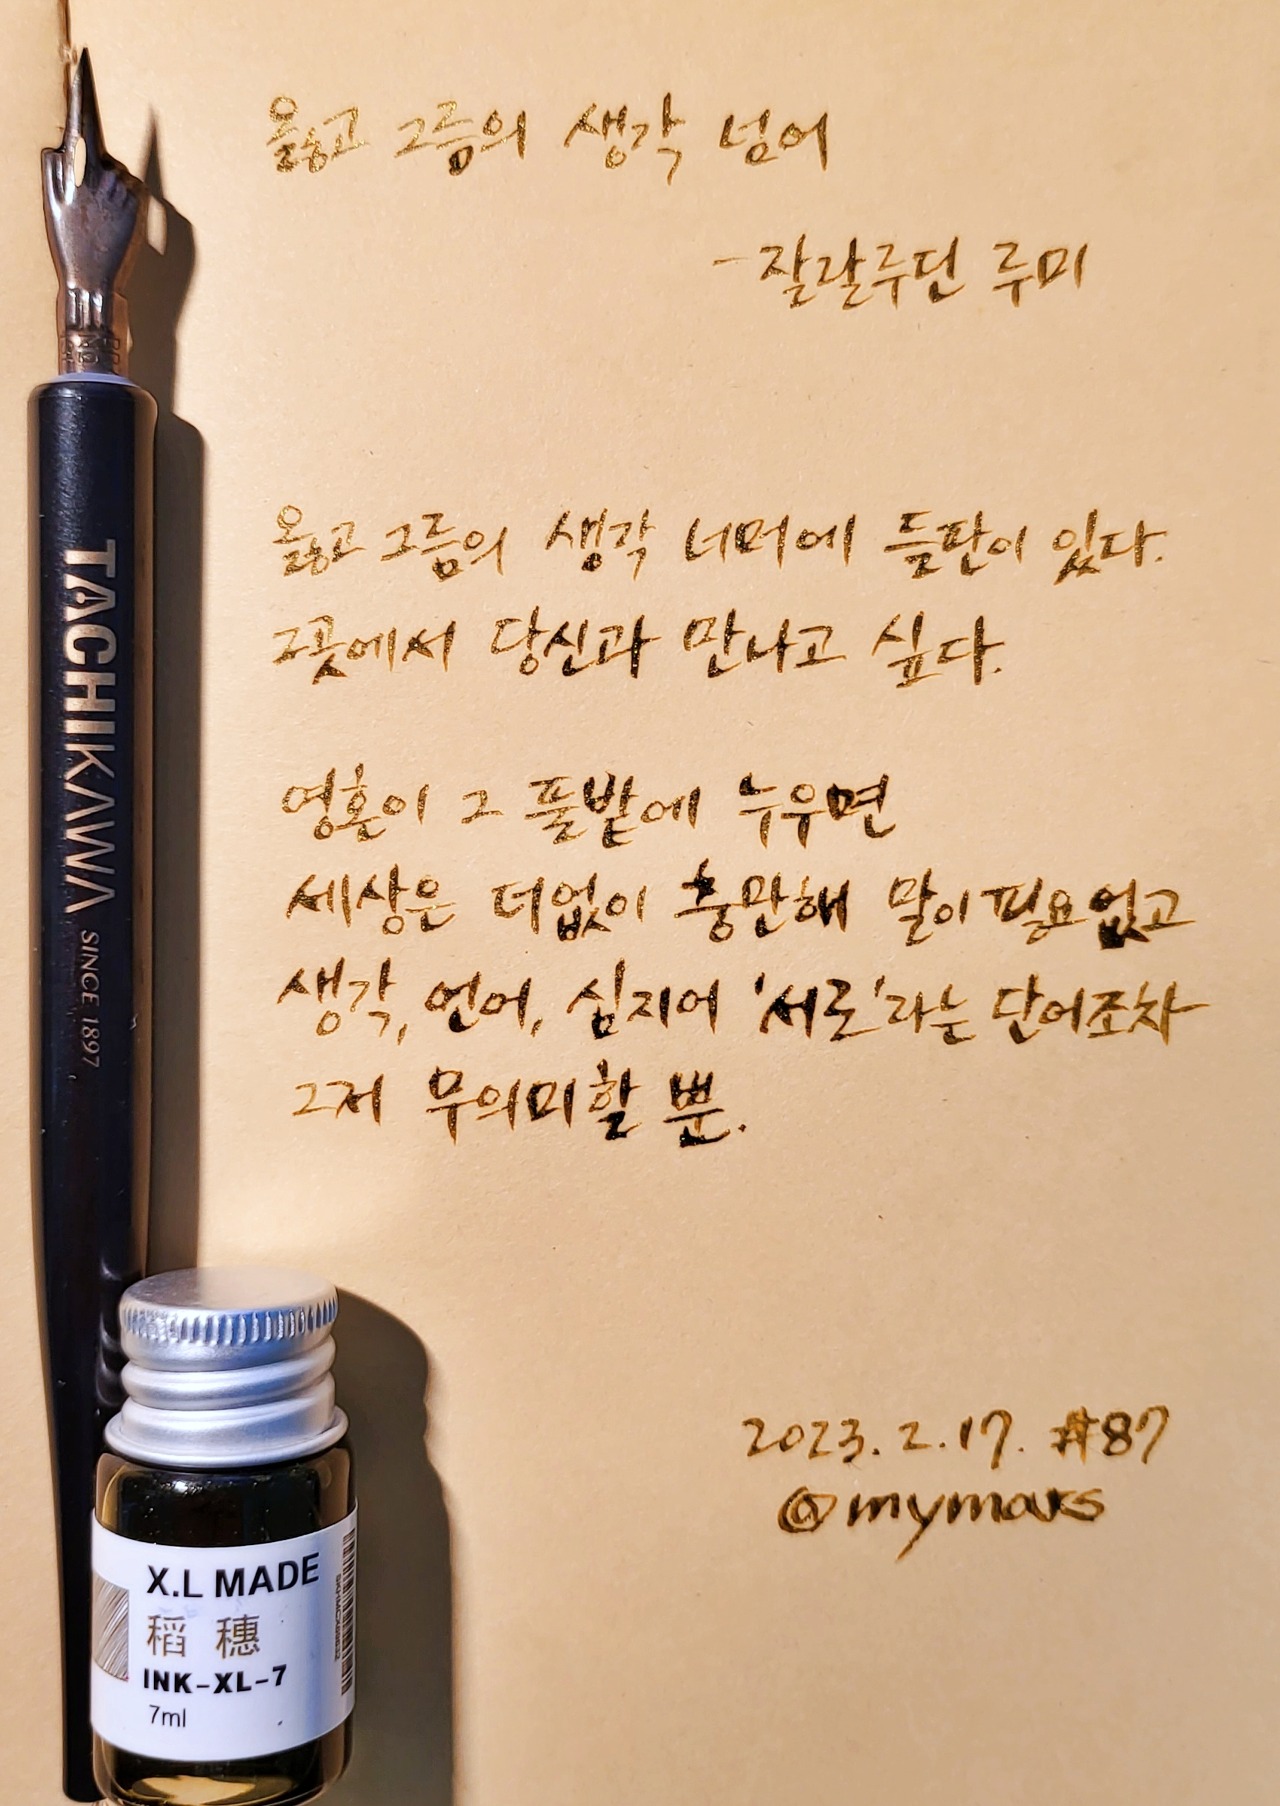 옳고 그름의 생각 넘어
-잘랄루딘 루미
옳고 그름의 생각 너머에 들판이 있다.
그곳에서 당신과 만나고 싶다.
영혼이 그 풀밭에 누우면
세상은 더없이 충만해 말이 필요없고
생각, 언어, 심지어 '서로'라는 단어조차
그저 무의미할 뿐.
2023. 2. 17. #87
@mymars
TACHIKAWA SINCE 1897
X.L MADE
稻穗
INK-XL-7
7ml